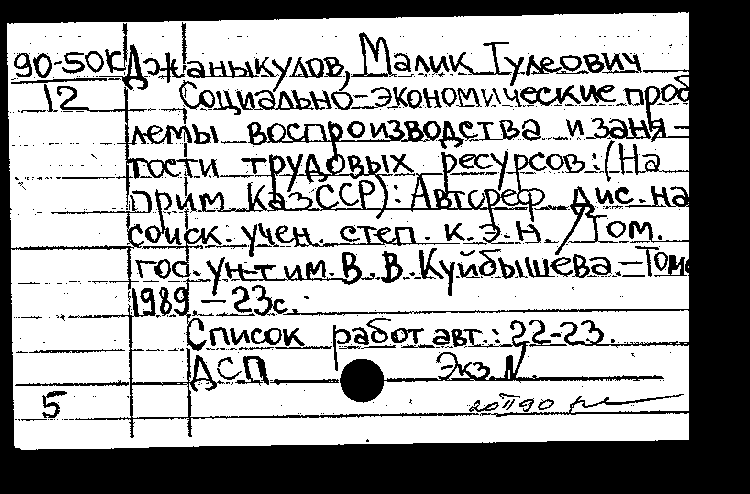 90-50К Джаныкулов, Малик Тулеович
12 Социально-экономические проб
лемы воспроизводства и заня-
тости трудовых ресурсов: (На
прим КазССР): Автореф дис. на
соиск. учен. степ. к.э.н. / Том.
гос. ун-т им. В.В. Куйбышева. - Томс
1989. - 23с.
Список работ авт.: 22-23.
ДСП Экз. N.
5 20 II 90